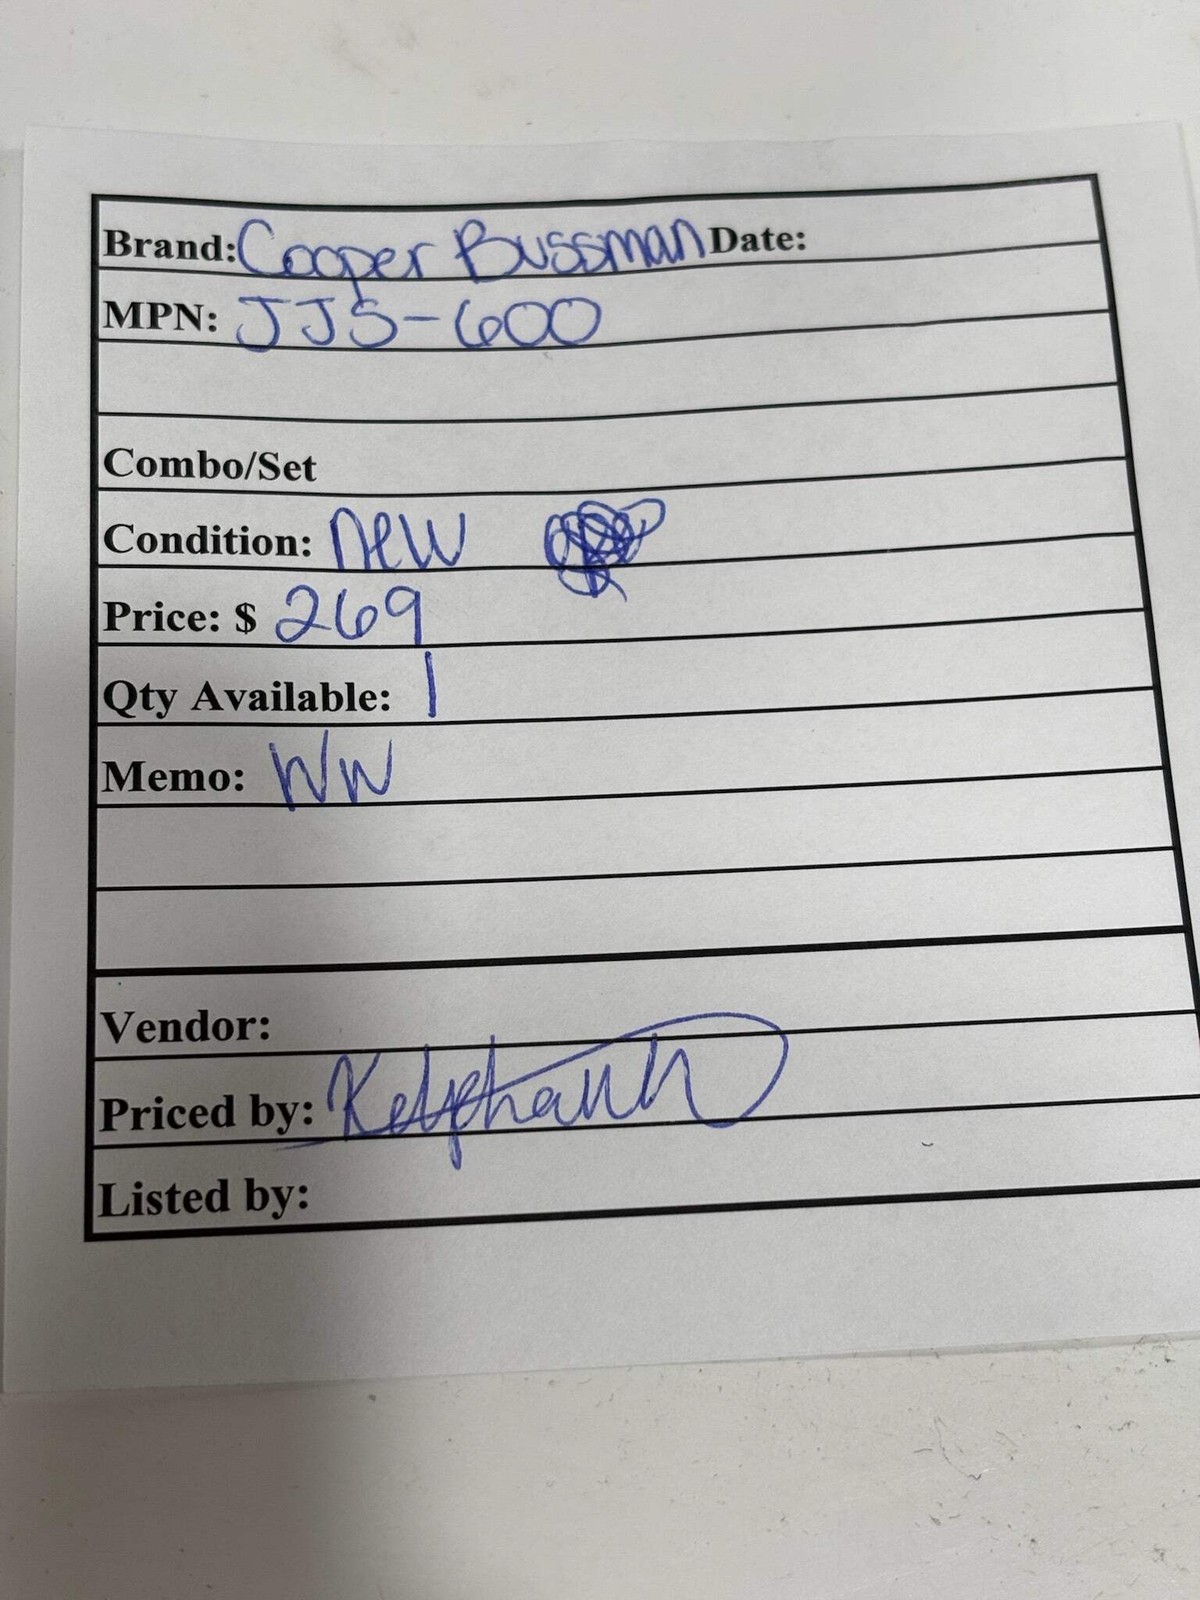 Brand: Cooper Bussman Date:
MPN: JJS-600
Combo/Set
Condition: new
Price: $ 269
Qty Available: 1
Memo: WW
Vendor:
Priced by:
Listed by: